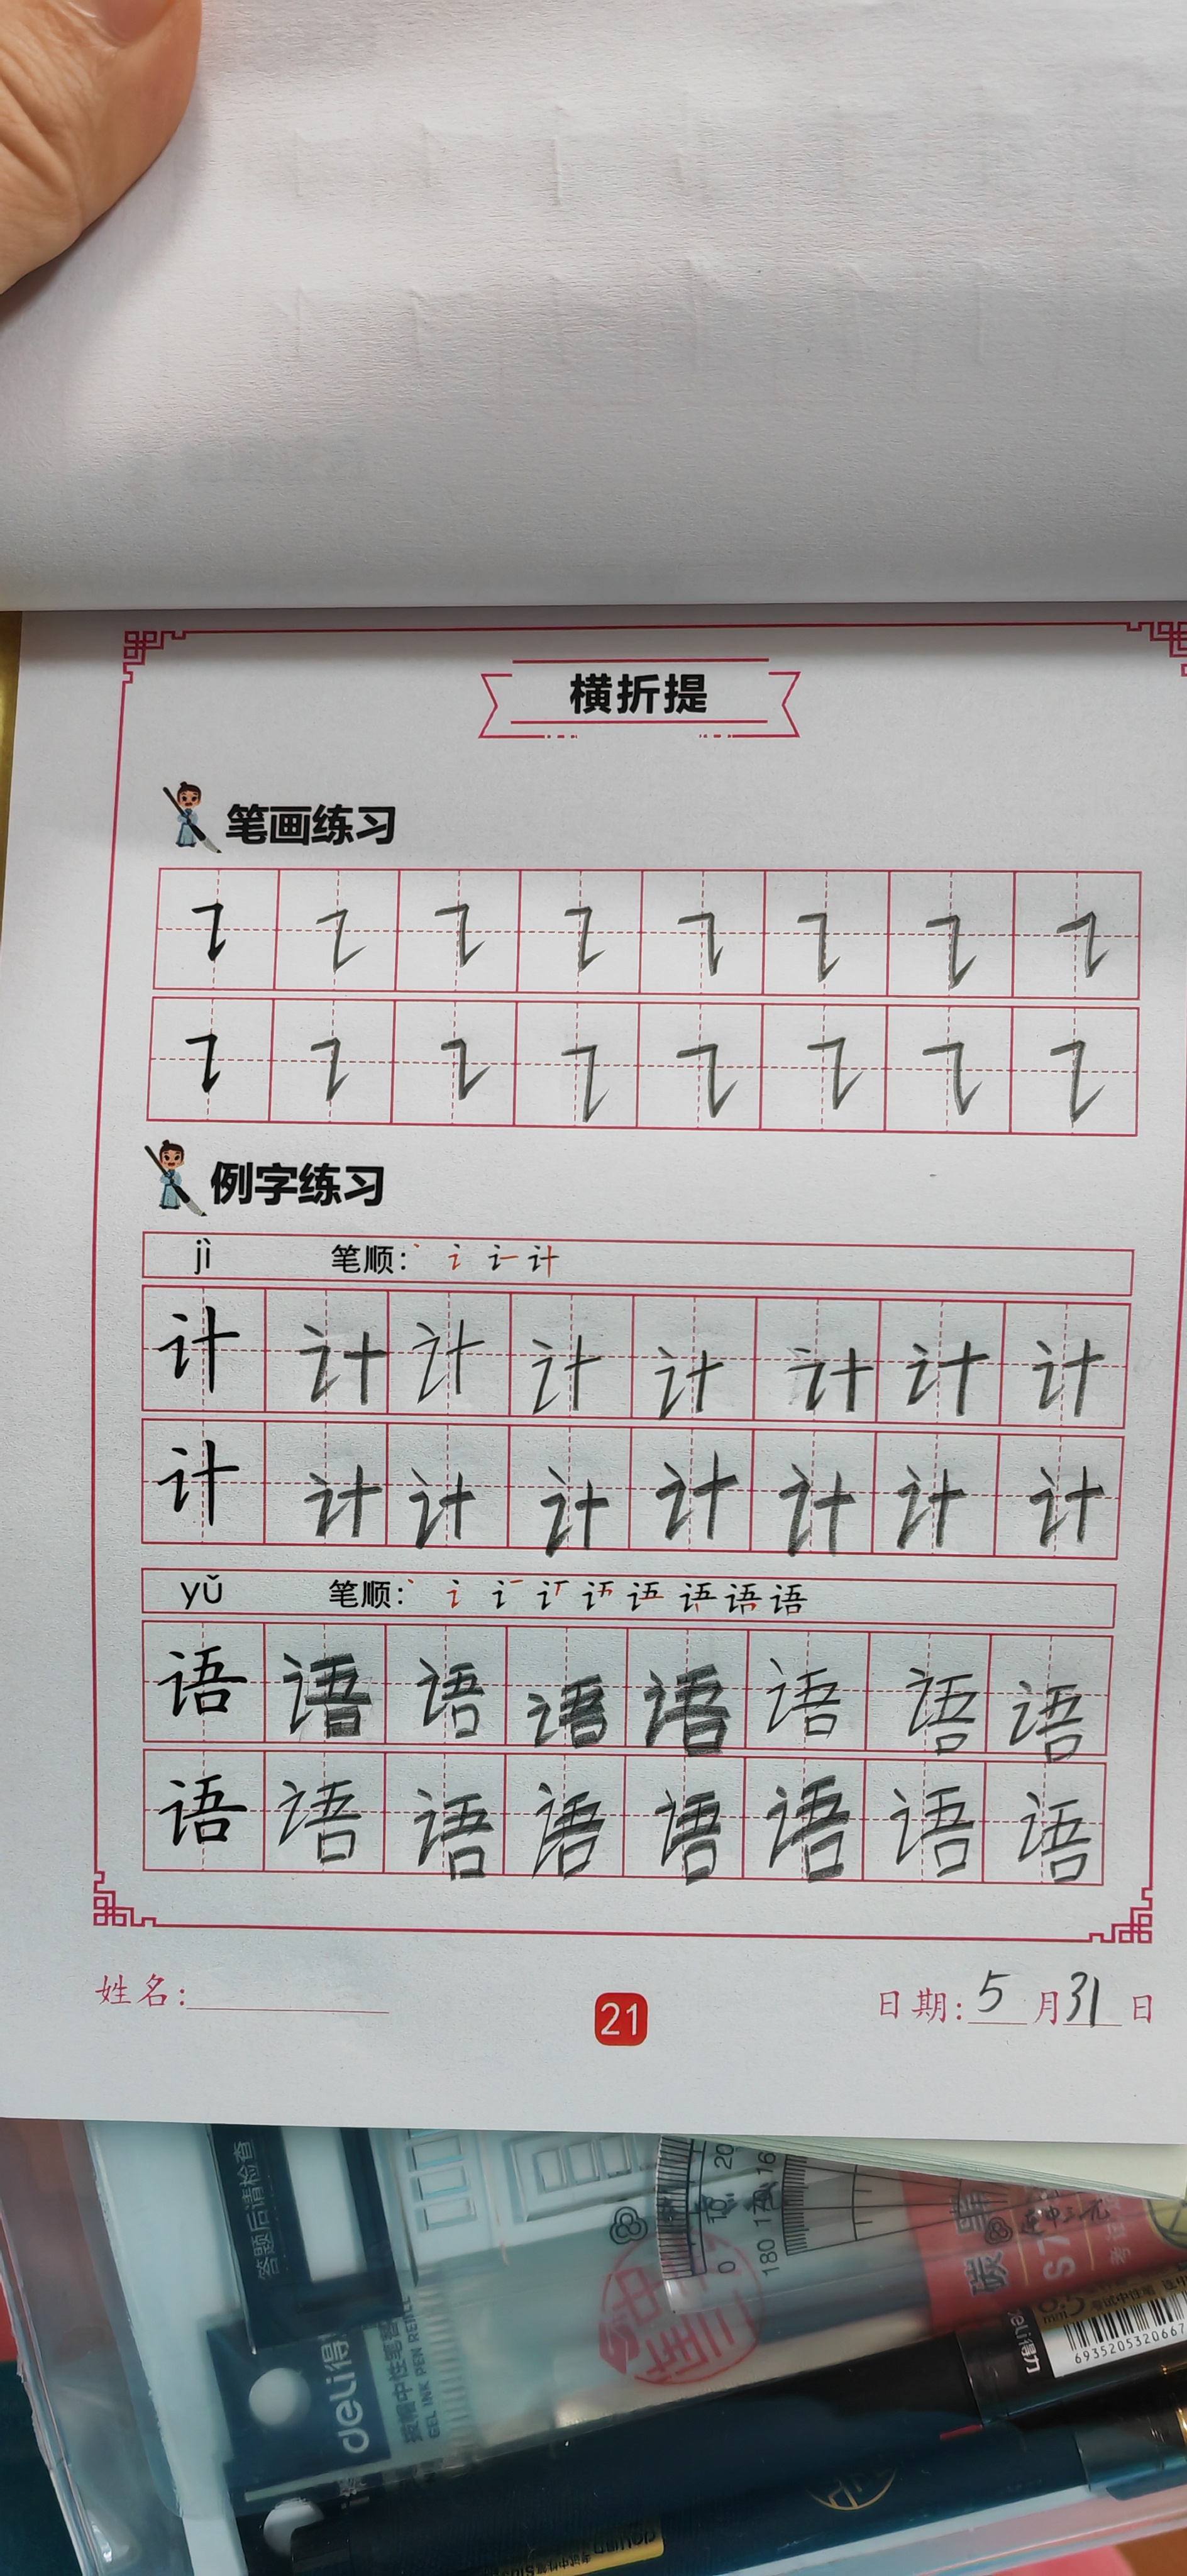 横折提
笔画练习
例字练习
jì 笔顺:
计 计 计 计 计 计 计 计
计 计 计 计 计 计 计 计
yǔ 笔顺: 语
语 语 语 语 语 语 语 语
语 语 语 语 语 语 语 语
姓名:
21
日期: 5 月 31 日
答题后请检查
deli得
GEL INK PEN REFILL
20
10
0
180 170 16
碳
S7
deli得力
6935205320667